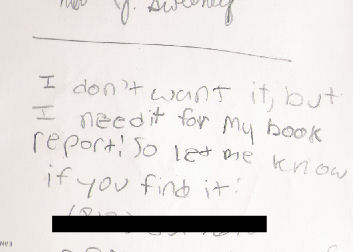 Mr J. Sweeney
I don't want it, but
I need it for my book
report! So let me know
if you find it!